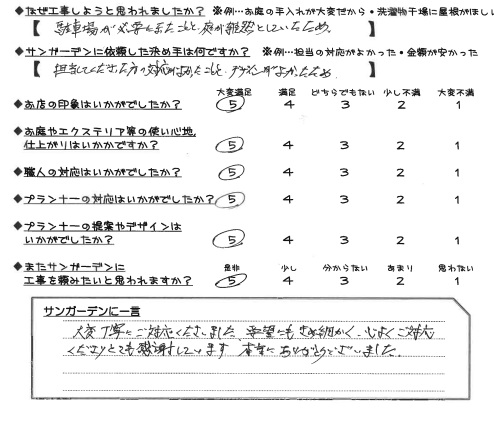 ◆なぜ工事しようと思われましたか？ ※例…お庭の手入れが大変だから・洗濯物干場に屋根がほしい
【 駐車場が必要となったことと、庭が雑然としていたため。 】
◆サンガーデンに依頼した決め手は何ですか？ ※例…担当の対応がよかった・金額が安かった
【 担当してくださった方の対応がよかったことと、デザインがよかったため 】
大変満足 満足 どちらでもない 少し不満 大変不満
◆お店の印象はいかがでしたか？ 5 4 3 2 1
◆お庭やエクステリア等の使い心地、
仕上がりはいかがですか？ 5 4 3 2 1
◆職人の対応はいかがでしたか？ 5 4 3 2 1
◆プランナーの対応はいかがでしたか？ 5 4 3 2 1
◆プランナーの提案やデザインは
いかがでしたか？ 5 4 3 2 1
是非 少し 分からない あまり 思わない
◆またサンガーデンに
工事を頼みたいと思われますか？ 5 4 3 2 1
サンガーデンに一言
大変丁寧にご対応くださいました。希望にもきめ細かく、心よくご対応
くださりとても感謝しています。本当にありがとうございました。